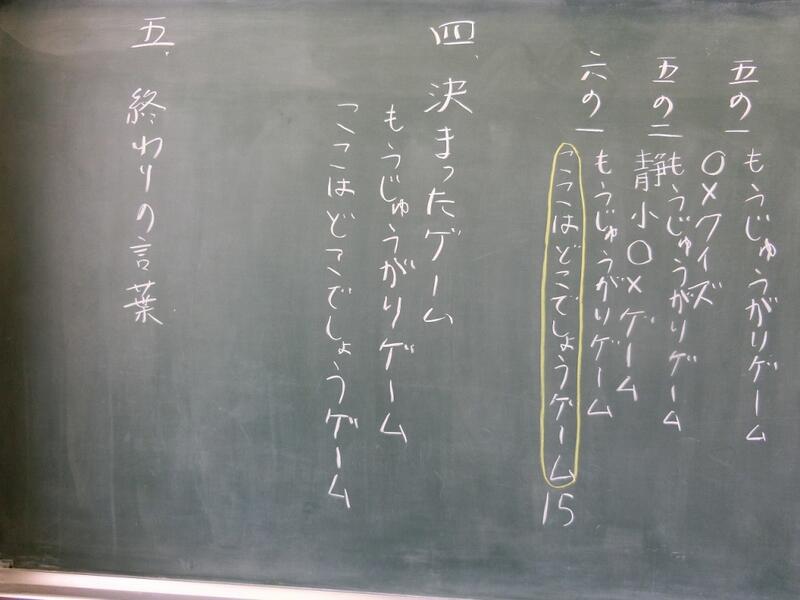 五の一 もうじゅうがりゲーム
○×クイズ
五の二 もうじゅうがりゲーム
静小○×ゲーム
六の一 もうじゅうがりゲーム
ここはどこでしょうゲーム 15
四、決まったゲーム
もうじゅうがりゲーム
ここはどこでしょうゲーム
五、終わりの言葉